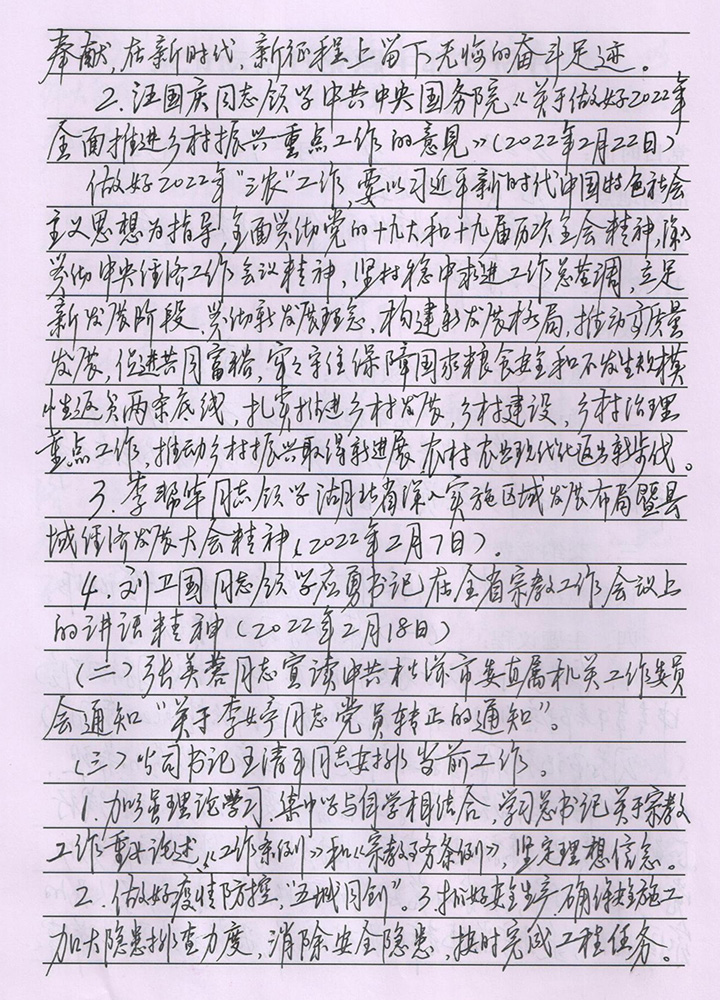 奉献,在新时代,新征程上留下无悔的奋斗足迹。
2.汪国庆同志领学中共中央国务院《关于做好2022年
全面推进乡村振兴重点工作的意见》(2022年2月22日)
做好2022年“三农”工作,要以习近平新时代中国特色社会
主义思想为指导,全面贯彻党的十九大和十九届历次全会精神,深入
贯彻中央经济工作会议精神,坚持稳中求进工作总基调,立足
新发展阶段、贯彻新发展理念、构建新发展格局、推动高质量
发展,促进共同富裕,牢牢守住保障国家粮食安全和不发生规模
性返贫两条底线,扎实推进乡村发展,乡村建设,乡村治理
重点工作,推动乡村振兴取得新进展、农村农业现代化迈出新步伐。
3.李帮华同志领学湖北省深入实施区域发展布局暨县
域经济发展大会精神(2022年2月7日)。
4.刘卫国同志领学应勇书记在全省宗教工作会议上
的讲话精神(2022年2月18日)
(二)张美蓉同志宣读中共松滋市委直属机关工作委员
会通知“关于李婷同志党员转正的通知”。
(三)公司书记王清平同志安排当前工作。
1.加强理论学习,集中学与自学相结合,学习总书记关于宗教
工作重要论述、《工作条例》和《宗教事务条例》,坚定理想信念。
2.做好疫情防控,“五城同创”。3.抓好安全生产,确保安全施工
加大隐患排查力度,消除安全隐患,按时完成工程任务。